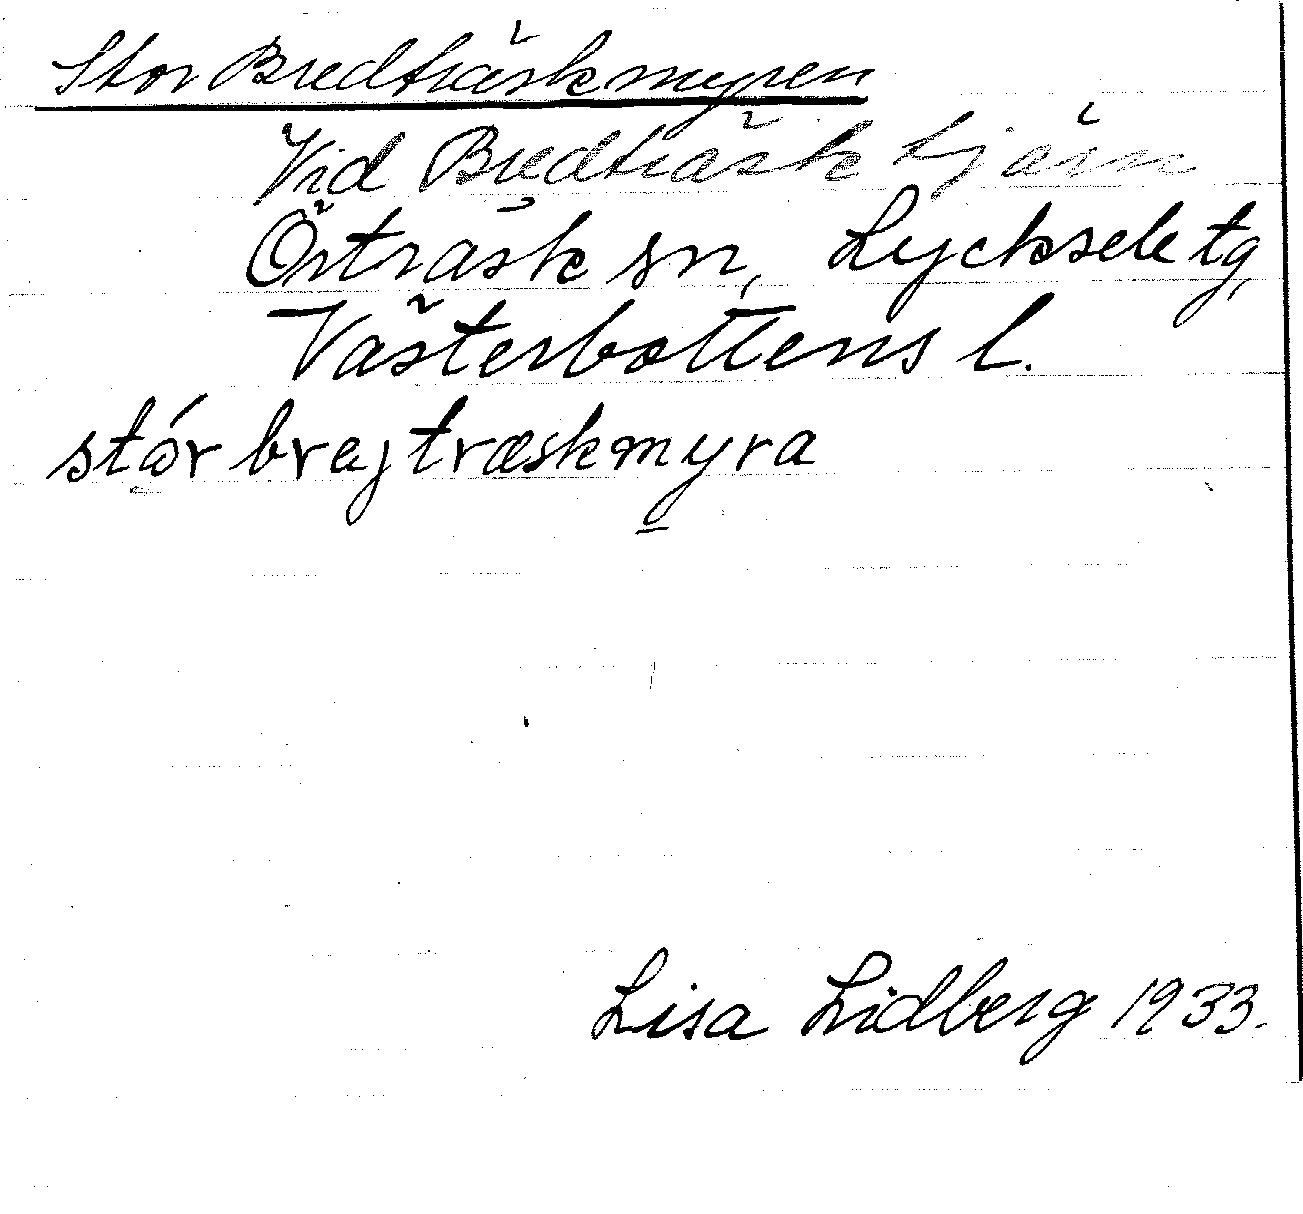 Stor Bredträskmyren
Vid Bredträsktjärn
Örträsk sn, Lycksele tg,
Västerbottens l.
stór brejtræskmyra
Lisa Lidberg 1933.